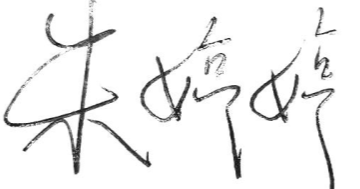 朱婷婷